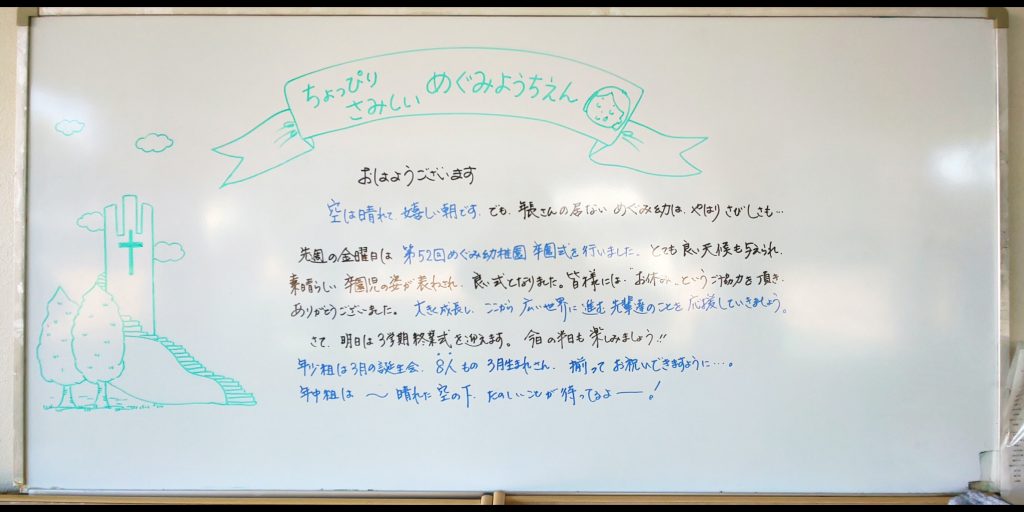 ちょっぴり
さみしい めぐみようちえん
おはようございます
空は晴れて 嬉しい朝です。でも、年長さんの居ない めぐみ幼は、やはり さびしさも…
先週の金曜日は 第52回めぐみ幼稚園 卒園式を行いました。とても良い天候も与えられ、
素晴らしい 卒園児の姿が表わされ、良い式となりました。皆様には“お休み”というご協力を頂き、
ありがとうございました。大きく成長し、ここから 広い世界に 進む 先輩達のことを 応援していきましょう。
さて、明日は3学期終業式を迎えます。今日の半日も 楽しみましょう!!
年少組は3月の誕生会。8人もの 3月生まれさん、揃って お祝いできますように…。
年中組は 〜 晴れた空の下、たのしいことが 待ってるよ——!